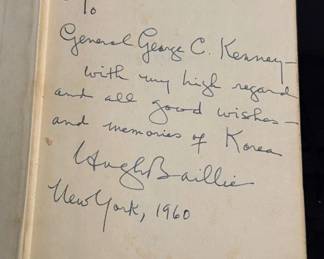 To
General George C. Kenney—
with my high regard
and all good wishes—
and memories of Korea
Hugh Baillie
New York, 1960